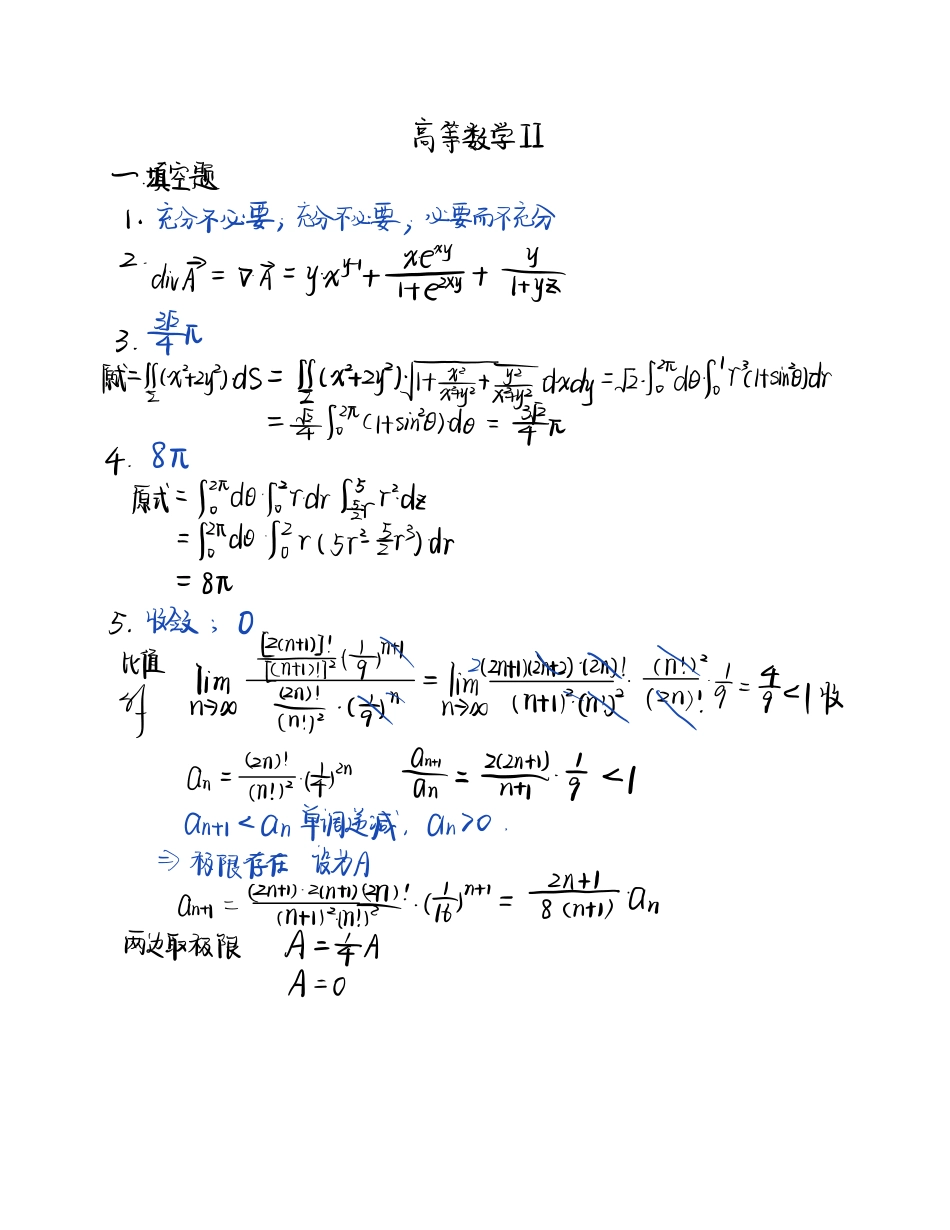 高等数学II
一.填空题
1. 充分不必要; 充分不必要; 必要而不充分
2. div A⃗ = ∇·A⃗ = y·x^{y-1} + \frac{xe^{xy}}{1+e^{2xy}} + \frac{y}{1+yz}
3. \frac{3\sqrt{2}}{4}π
原式=∬_Σ(x²+2y²)·dS = ∬_Σ(x²+2y²)·\sqrt{1+\frac{x²}{x²+y²}+\frac{y²}{x²+y²}} dxdy = \sqrt{2}·∫_0^{2π}dθ·∫_0^1 r³(1+sin²θ)dr
= \frac{\sqrt{2}}{4}∫_0^{2π}(1+sin²θ)·dθ = \frac{3\sqrt{2}}{4}π
4. 8π
原式 = ∫_0^{2π}dθ·∫_0^2 rdr ∫_{\frac{5}{2}r}^5 r²·dz
= ∫_0^{2π}dθ·∫_0^2 r(5r²-\frac{5}{2}r³)dr
= 8π
5. 收敛; 0
比值 \lim_{n→∞} \frac{\frac{[2(n+1)]!}{[(n+1)!]²}·(\frac{1}{9})^{n+1}}{\frac{(2n)!}{(n!)²}·(\frac{1}{9})^n} = \lim_{n→∞} \frac{2(2n+1)(2n+2)·(2n)!}{(n+1)²·(n!)²}·\frac{(n!)²}{(2n)!}·\frac{1}{9} = \frac{4}{9} < 1 收
a_n = \frac{(2n)!}{(n!)²}·(\frac{1}{4})^{2n} \frac{a_{n+1}}{a_n} = \frac{2(2n+1)}{n+1}·\frac{1}{9} < 1
a_{n+1} < a_n 单调递减, a_n>0.
⇒ 极限存在 设为A
a_{n+1} = \frac{(2n+1)·2(n+1)(2n)!}{(n+1)²·(n!)²}·(\frac{1}{16})^{n+1} = \frac{2n+1}{8(n+1)}·a_n
两边取极限 A = \frac{1}{4}A
A = 0